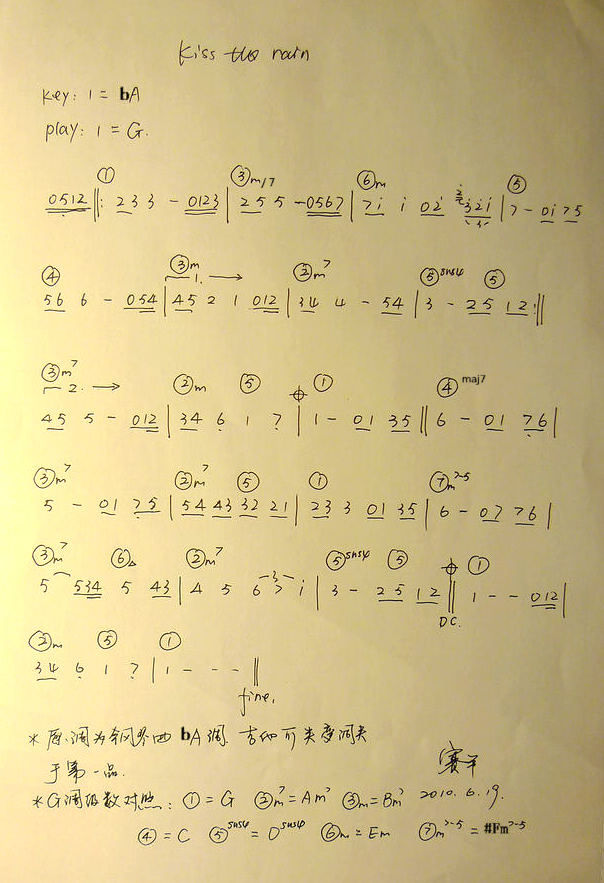 Kiss the rain
key: 1 = bA
play: 1 = G.
① ③m/7 ⑥m ⑤
0512 ‖: 2 3 3 - 0123 | 2 5 5 - 0567 | 7 i i 0 2 i 3 2 i | 7 - 0 i 7 5
④ ③m 1. → ②m7 ⑤sus4 ⑤
5 6 6 - 0 5 4 | 4 5 2 1 0 1 2 | 3 4 4 - 5 4 | 3 - 2 5 1 2 :‖
③m7 2. → ②m ⑤ ① ④maj7
4 5 5 - 0 1 2 | 3 4 6 1 7 | 1 - 0 1 3 5 ‖ 6 - 0 1 7 6 |
③m7 ②m7 ⑤ ① ⑦m7-5
5 - 0 1 7 5 | 5 4 4 3 3 2 2 1 | 2 3 3 0 1 3 5 | 6 - 0 7 7 6 |
③m7 ⑥△ ②m7 ⑤sus4 ⑤ ①
5 5 3 4 5 4 3 | 4 5 6 7 i | 3 - 2 5 1 2 ‖ 1 - - 0 1 2 |
D.C.
②m ⑤ ①
3 4 6 1 7 | 1 - - - ‖
fine.
* 原调为钢琴界的 bA调. 吉他可变调夹
于第一品.
* G调级数对照: ① = G ②m7 = Am7 ③m7 = Bm7 2010.6.19.
④ = C ⑤sus4 = Dsus4 ⑥m = Em ⑦m7-5 = #Fm7-5